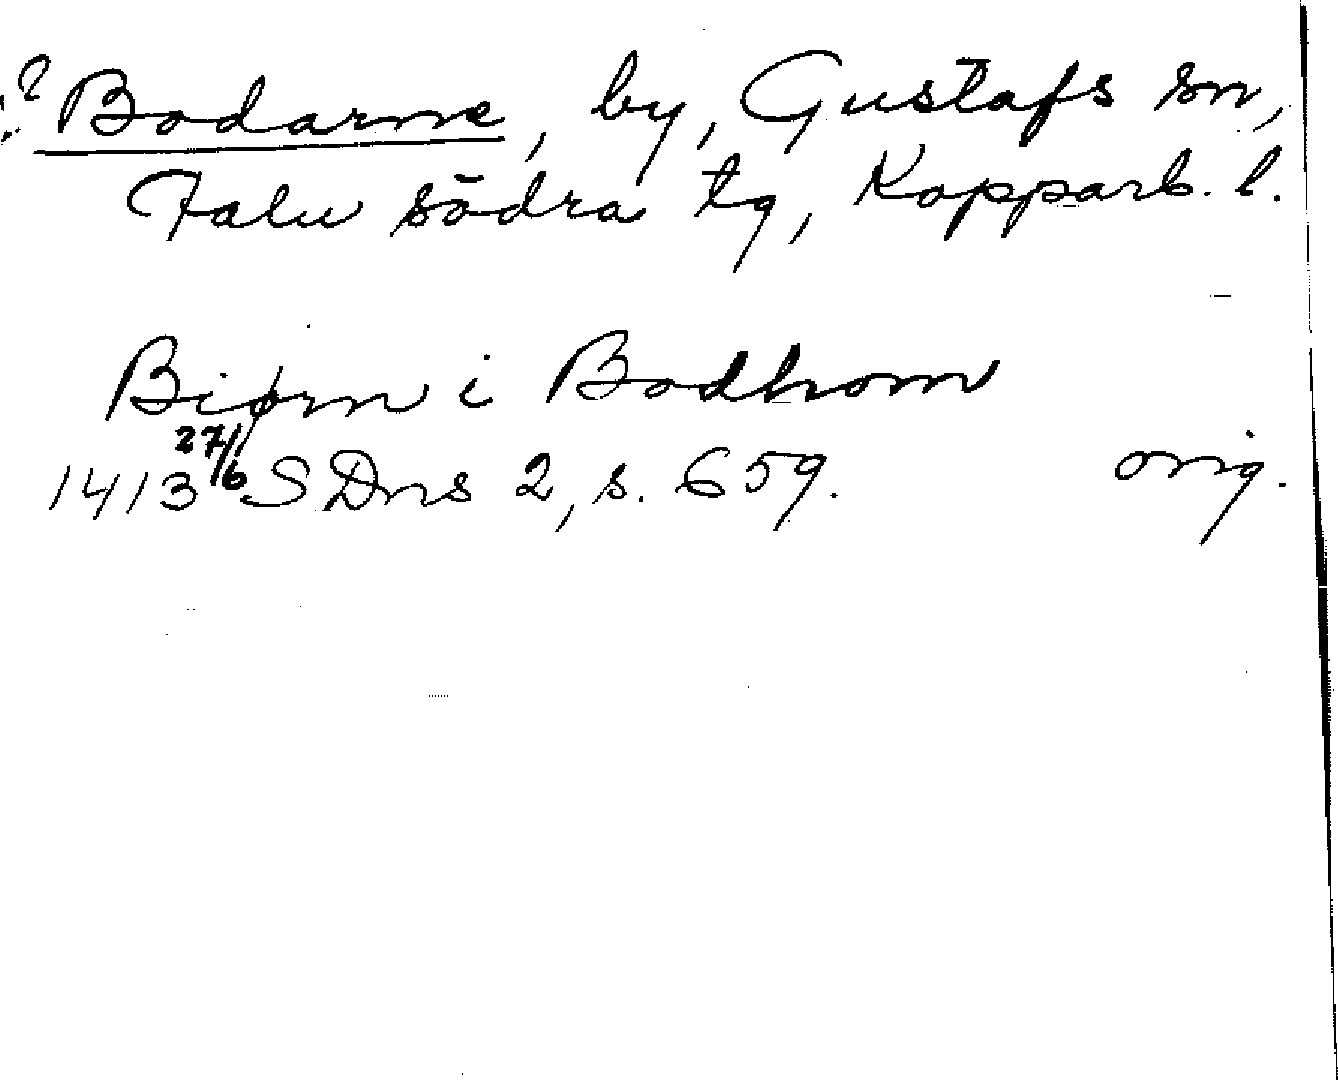 ? Bodarne, by, Gustafs sn,
Falu södra tg, Kopparb. l.
Biørn i Bodhom
1413 27/6 SDns 2, s. 659. orig.